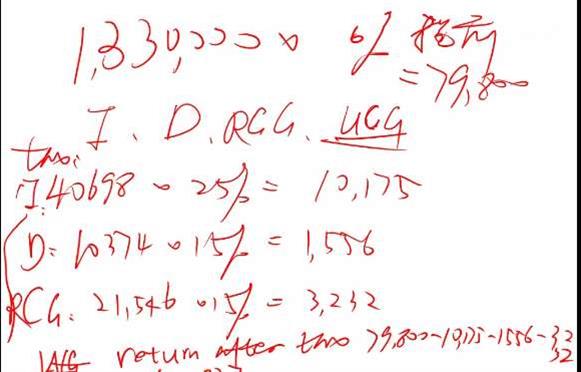 1,330,000 × 6%
= 79,800
I. D. RCG. UCG
tax:
I: 40698 × 25% = 10,175
D: 10374 × 15% = 1,556
RCG: 21,546 × 15% = 3,232
return after tax 79,800-10,175-1556-32
32